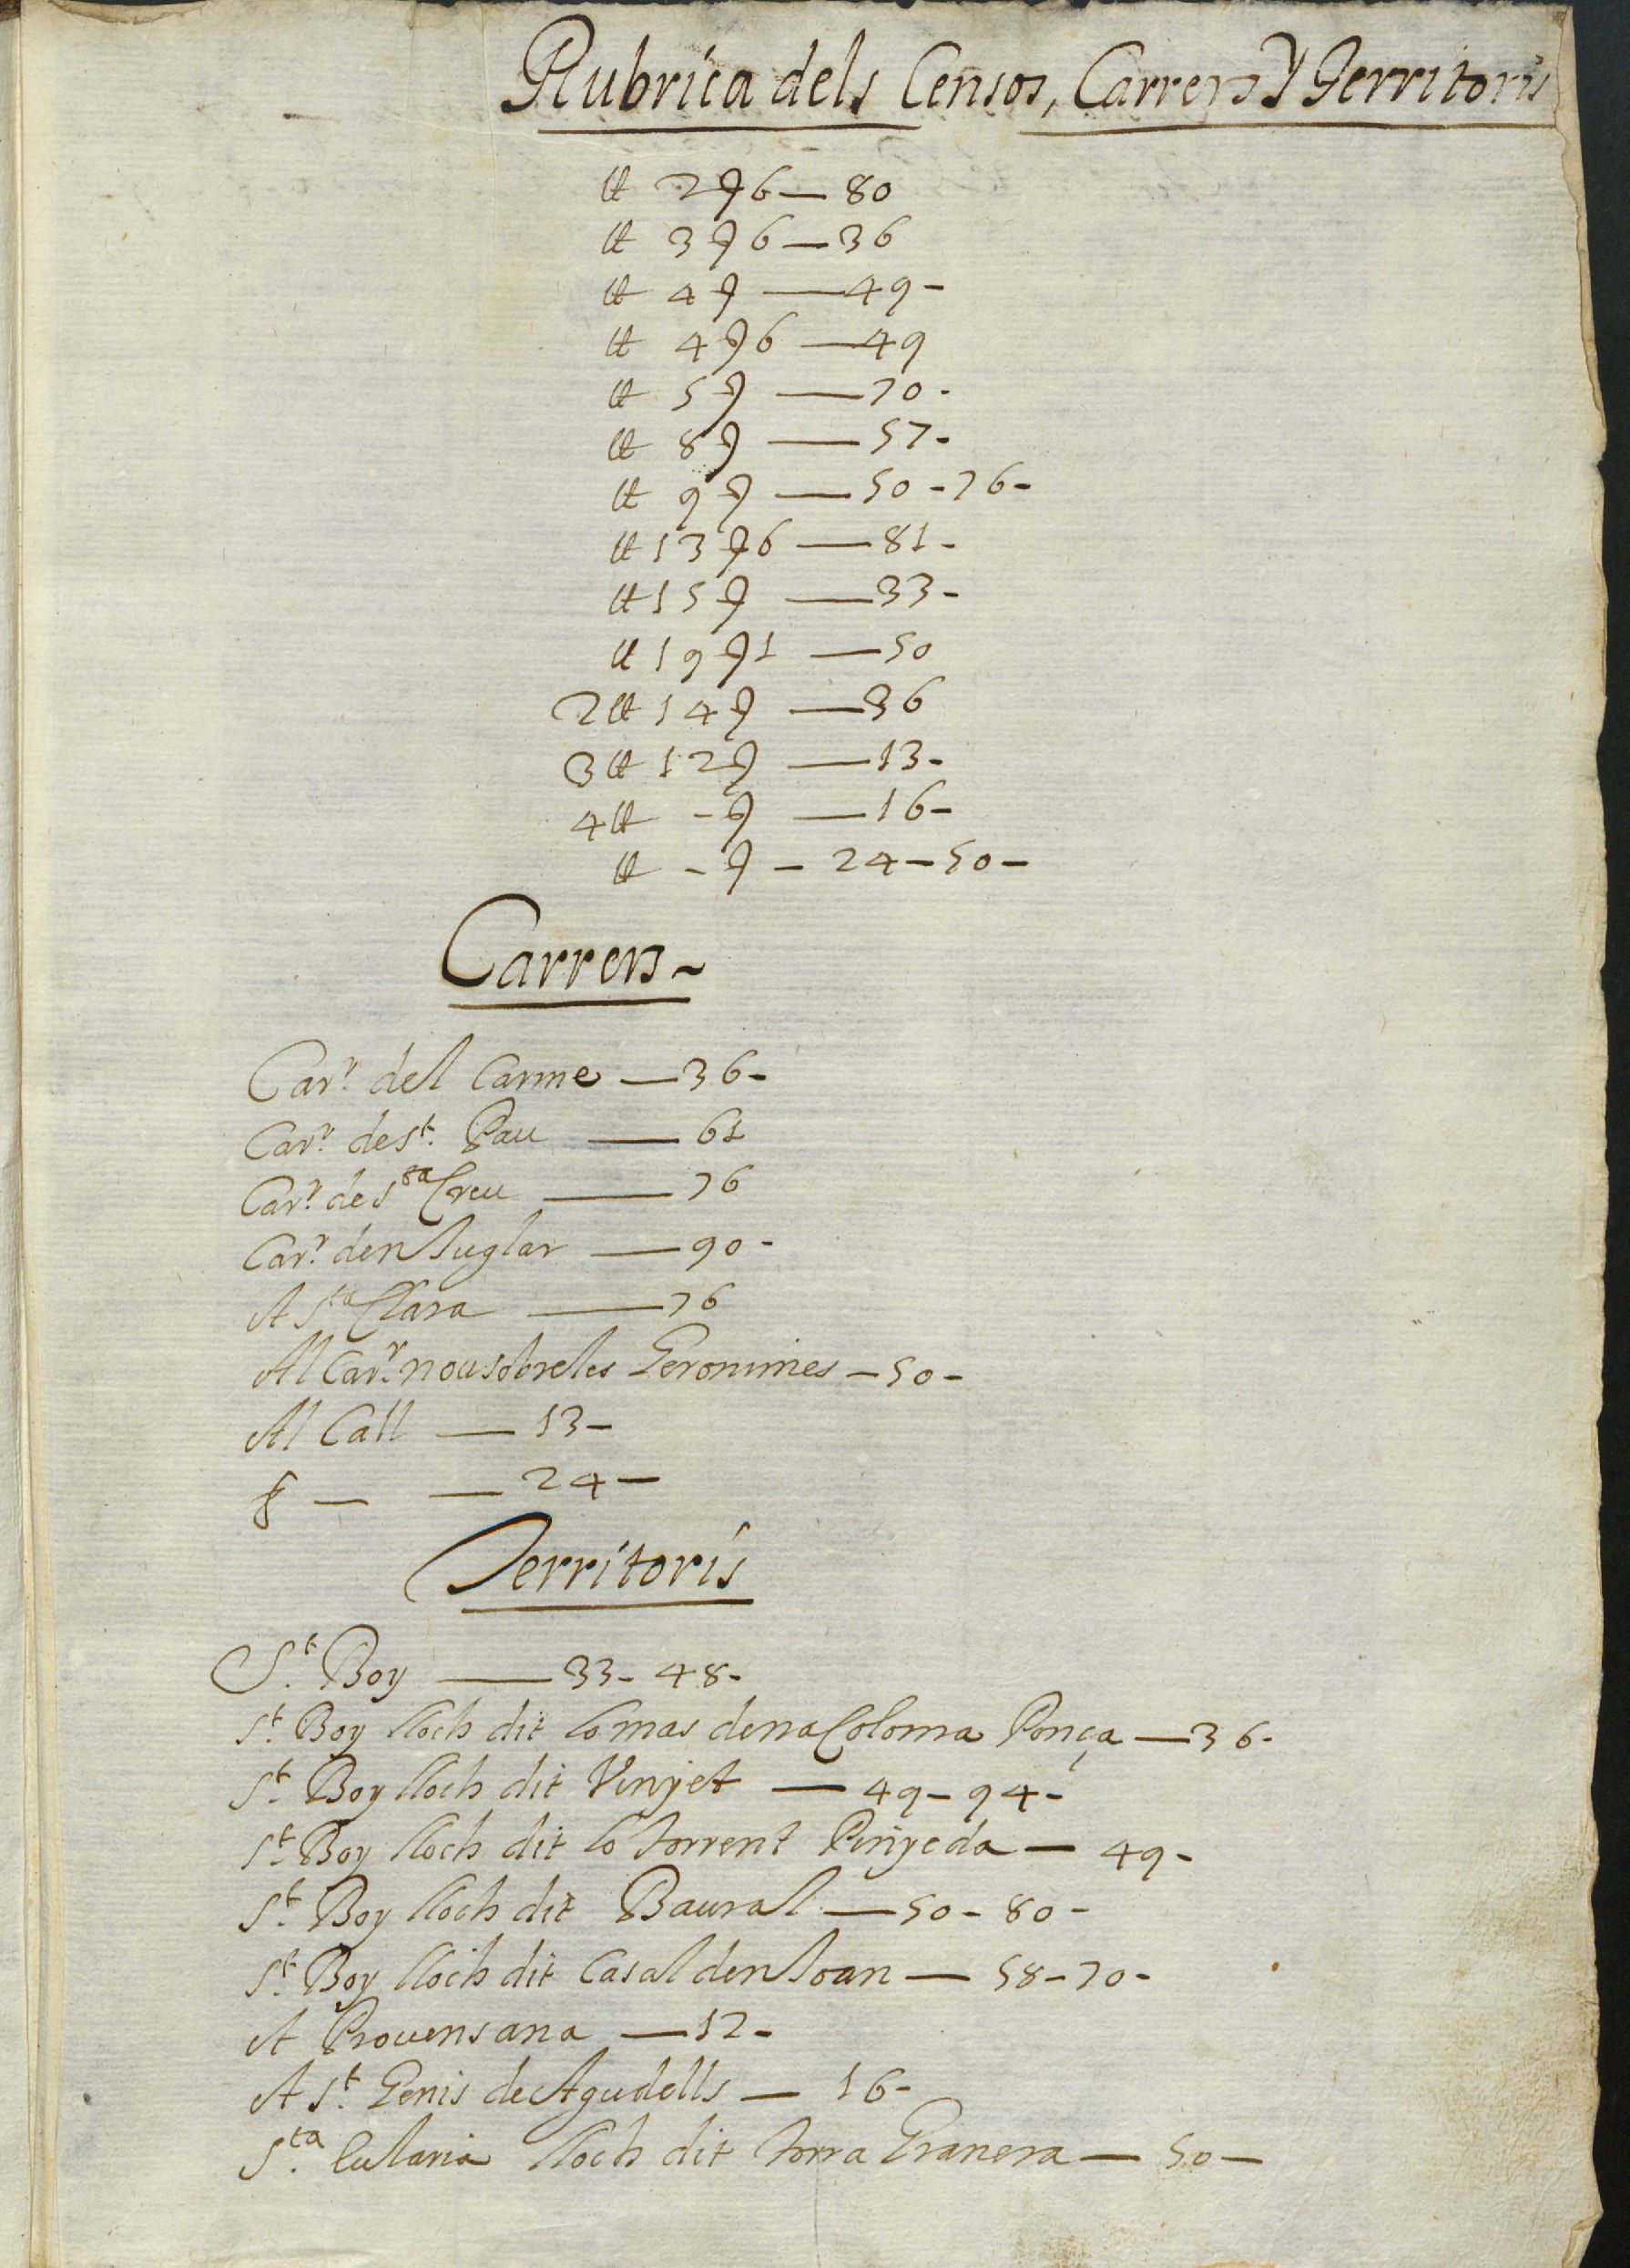 Rubrica dels Censos, Carrers y Territoris
ll 2 s 6 — 80
ll 3 s 6 — 36
ll 4 s — 49 -
ll 4 s 6 — 49
ll 5 s — 70 -
ll 8 s — 57 -
ll 9 s — 50 - 76 -
ll 13 s 6 — 81 -
ll 15 s — 33 -
ll 19 s 1 — 50
2 ll 14 s — 36
3 ll 12 s — 13 -
4 ll - s — 16 -
ll - s - 24 - 50 -
Carrers ~
Carr. del Carme — 36 -
Carr. de St. Pau — 61
Carr. de Sta Creu — 76
Carr. den Juglar — 90 -
A Sta Clara — 76
Al Carr. nou sobre les Geronimes — 50 -
Al Call — 13 -
— — 24 —
Territoris
St. Boy — 33 - 48 -
St. Boy lloch dit lo mas de na Coloma Ponça — 36 -
St. Boy lloch dit Vinyet — 49 - 94 -
St. Boy lloch dit lo torrent Pinyeda — 49 -
St. Boy lloch dit Baural — 50 - 80 -
St. Boy lloch dit Casal den Joan — 58 - 70 -
A Prouensana — 12 -
A St. Genis de Agudells — 16 -
Sta. Eularia lloch dit torra Granera — 50 —